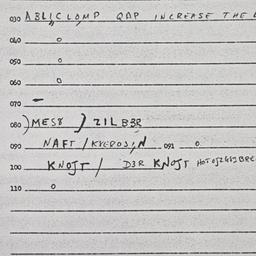 030 ABLICLOMP QAP INCREASE THE
040 0
050 0
060 0
070 –
080 ) MES8 } ZIL B3R
090 NAFT / KVEROSIN 091 0
100 KNOJT / D3R KNOJT
110 0